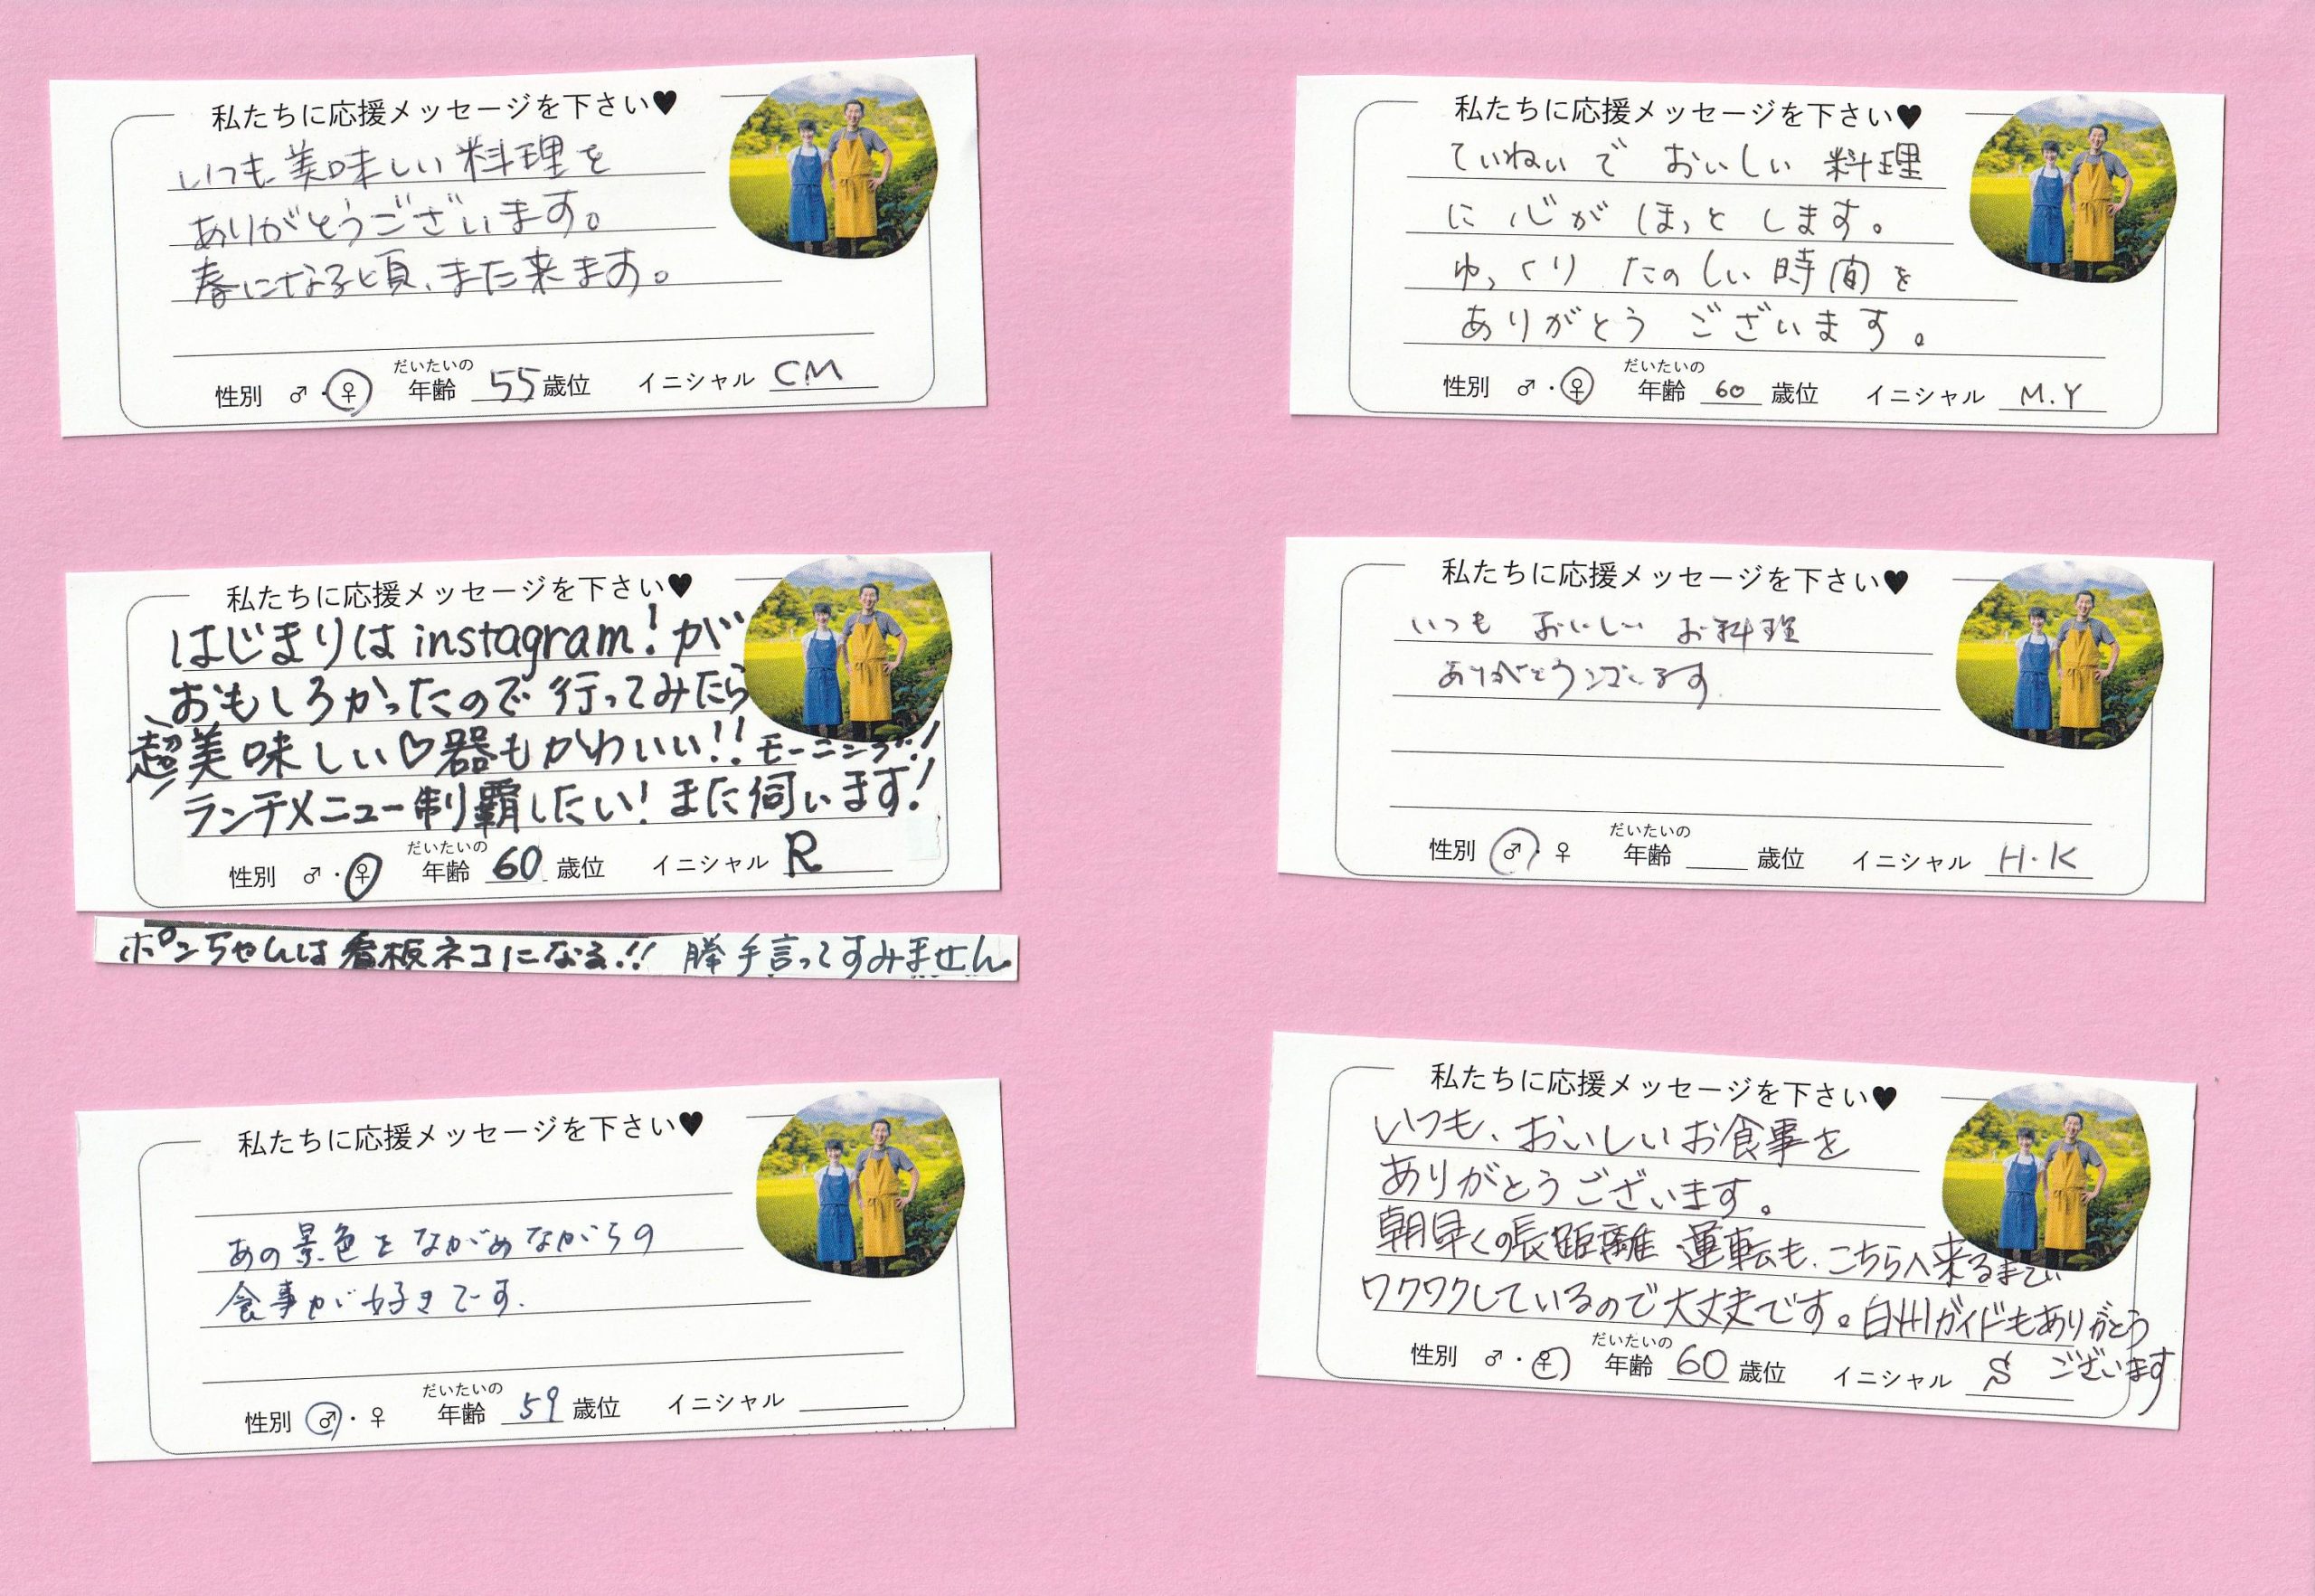 私たちに応援メッセージを下さい♥
いつも美味しい料理を
ありがとうございます。
春になる頃、また来ます。
性別 ♂・♀ だいたいの年齢 55歳位 イニシャル CM
私たちに応援メッセージを下さい♥
ていねいで おいしい 料理
に 心が ほっと します。
ゆっくり たのしい 時間を
ありがとう ございます。
性別 ♂・♀ だいたいの年齢 60 歳位 イニシャル M.Y
私たちに応援メッセージを下さい♥
はじまりは instagram!が
おもしろかったので行ってみたら
超美味しい♡器もかわいい!!モーニング!
ランチメニュー制覇したい!また伺います!
性別 ♂・♀ だいたいの年齢 60 歳位 イニシャル R
ポンちゃんは看板ネコになる!! 勝手言ってすみません
私たちに応援メッセージを下さい♥
いつも おいしい お料理
ありがとうございます
性別 ♂・♀ だいたいの年齢 歳位 イニシャル H.K
私たちに応援メッセージを下さい♥
あの景色をながめながらの
食事が好きです.
性別 ♂・♀ だいたいの年齢 59 歳位 イニシャル
私たちに応援メッセージを下さい♥
いつも、おいしいお食事を
ありがとうございます。
朝早くの長距離 運転も、こちらへ来るまで
ワクワクしているので大丈夫です。白州ガイドもありがとう
ございます
性別 ♂・♀ だいたいの年齢 60 歳位 イニシャル S